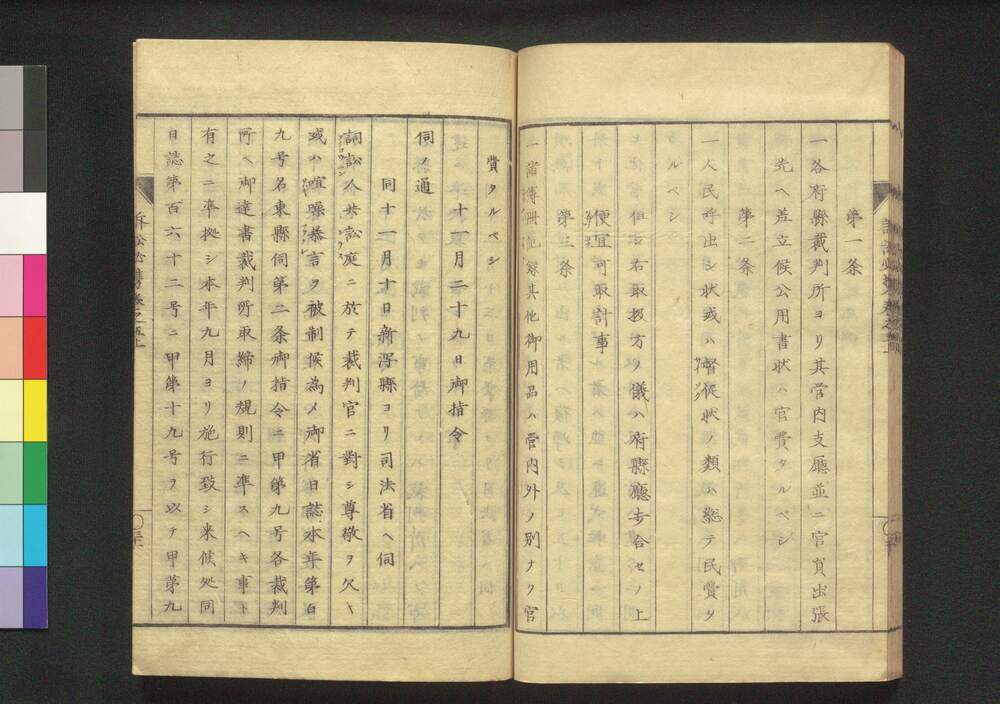 第一条
一各府縣裁判所ヨリ其管内支廳並ニ官員出張
先ヘ差立候公用書状ハ官費タルベシ
第二条
一人民呼出シ状或ハ督促状ノ類ハ総テ民費タ
ルベシ
但シ右取扱方ノ儀ハ府縣廳歩合セノ上
便宜可取計事
第三条
一簿冊記録其他御用品ハ管内外ノ別ナク官
費タルベシ
十一月二十九日御指令
伺ノ通
同十一月十日新潟縣ヨリ司法省ヘ伺
詞訟人共訟庭ニ於テ裁判官ニ對シ尊敬ヲ欠キ
或ハ喧譟暴言ヲ被制候為メ御省日誌本年第百
九号名東縣伺第二条御指令ニ甲第九号各裁判
所ヘ御達書裁判所取締ノ規則ニ準スヘキ事ト
有之ニ準拠シ本年九月ヨリ施行致シ来候処同
日誌第百六十二号ニ甲第十九号ヲ以テ甲第九